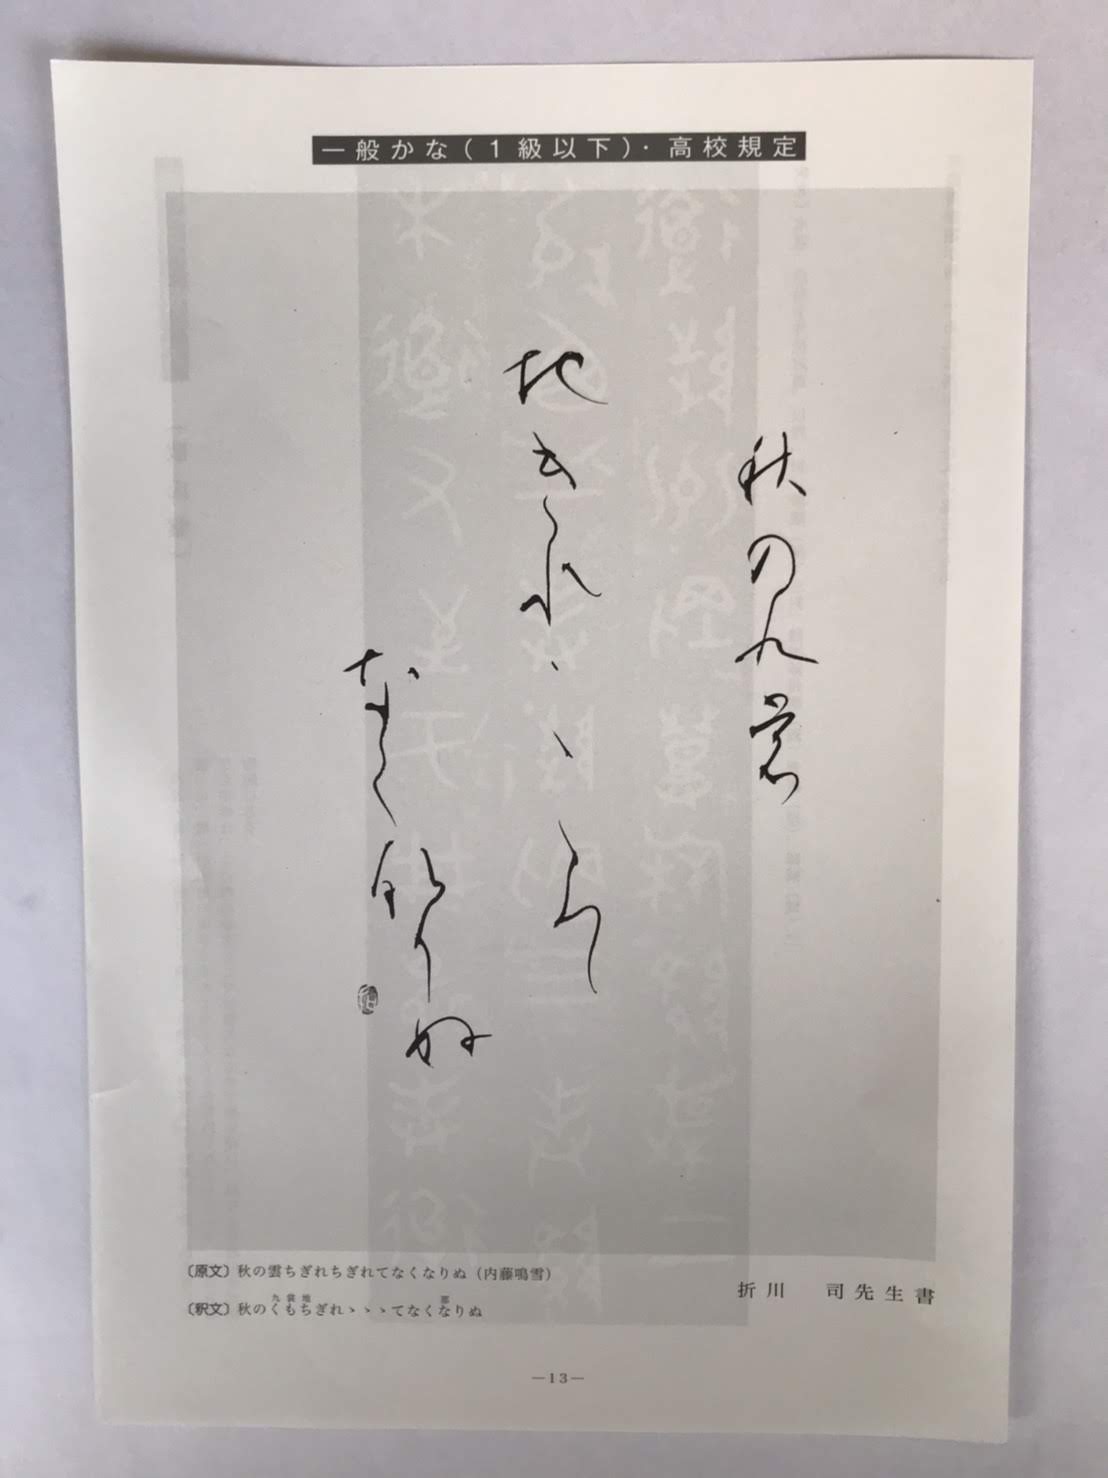 一般かな(1級以下)・高校規定
秋の九裳
地ぎれヽヽヽて
なく那りぬ
〔原文〕秋の雲ちぎれちぎれてなくなりぬ(内藤鳴雪)
〔釈文〕秋のくもちぎれヽヽヽてなくなりぬ
九裳地 那
折川 司先生書
—13—